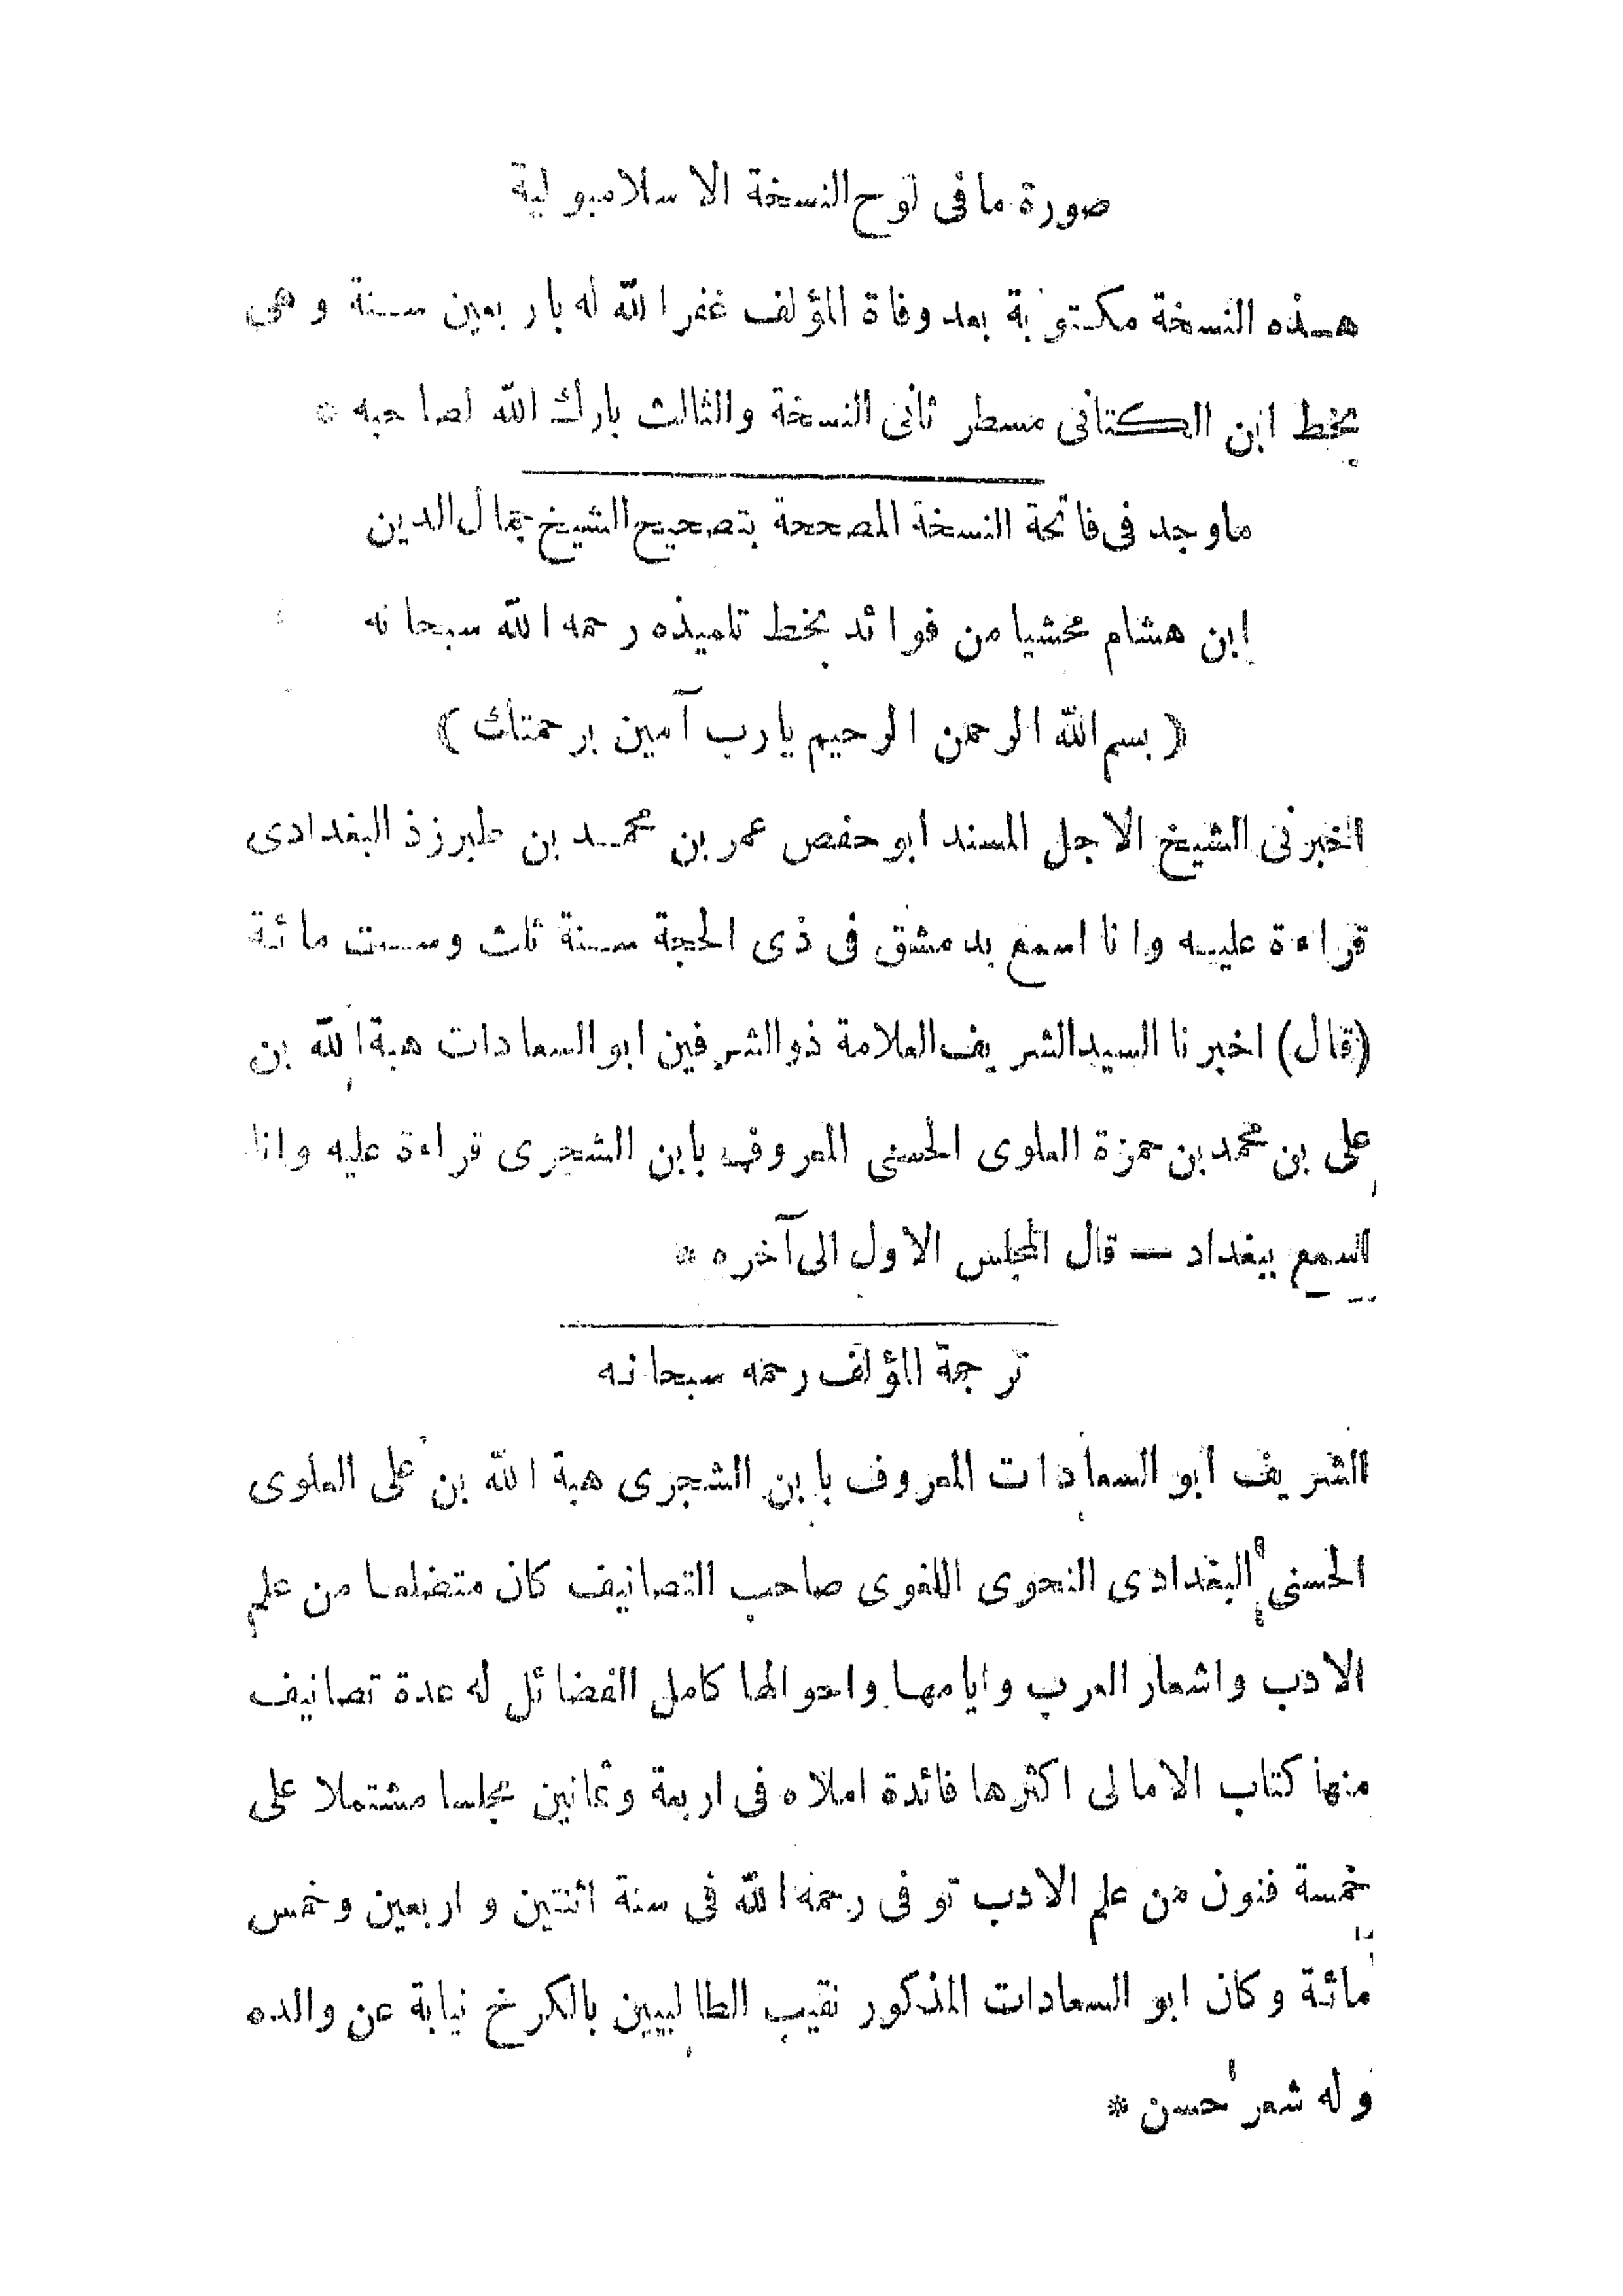 صورة ما فى لوح النسخة الاسلامبولية
هـذه النسخة مكتوبة بعد وفاة المؤلف غفر الله له باربعين سـنة وهى
بخط ابن الكتانى مسطر ثانى النسخة والثالث بارك الله لصاحبه *
ماوجد فى فاتحة النسخة المصححة بتصحيح الشيخ جمال الدين
ابن هشام محشيا من فوائد بخط تلميذه رحمه الله سبحانه
( بسم الله الرحمن الرحيم يارب آمين برحمتك )
اخبرنى الشيخ الاجل المسند ابو حفص عمر بن محمـد بن طبرزذ البغدادى
قراءة عليـه وانا اسمع بدمشق فى ذى الحجة سـنة ثلث وسـت مائة
(قال) اخبرنا السيد الشريف العلامة ذو الشرفين ابو السعادات هبة الله بن
على بن محمد بن حمزة العلوى الحسنى المعروف بابن الشجرى قراءة عليه وانا
اسمع ببغداد — قال المجلس الاول الى آخره *
ترجمة المؤلف رحمه سبحانه
الشريف ابو السعادات المعروف بابن الشجرى هبة الله بن على العلوى
الحسنى البغدادى النحوى اللغوى صاحب التصانيف كان متضلعا من علم
الادب واشعار العرب وايامهـا واحوالها كامل الفضائل له عدة تصانيف
منها كتاب الامالى اكثرها فائدة املاه فى اربعة وثمانين مجلسا مشتملا على
خمسة فنون من علم الادب توفى رحمه الله فى سنة اثنتين و اربعين وخمس
مائة وكان ابو السعادات المذكور نقيب الطالبيين بالكرخ نيابة عن والده
وله شعر حسن *